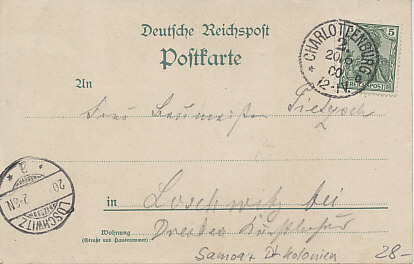 Deutsche Reichspost
Postkarte
CHARLOTTENBURG
2.
20/6
00
12-1N.
5
REICHSPOST
An
Frau Baumeister
in Loschwitz bei
Dresden
Wohnung
(Straße und Hausnummer)
LOSCHWITZ
20
2-3N
a
Samoa + Dt Kolonien
28-